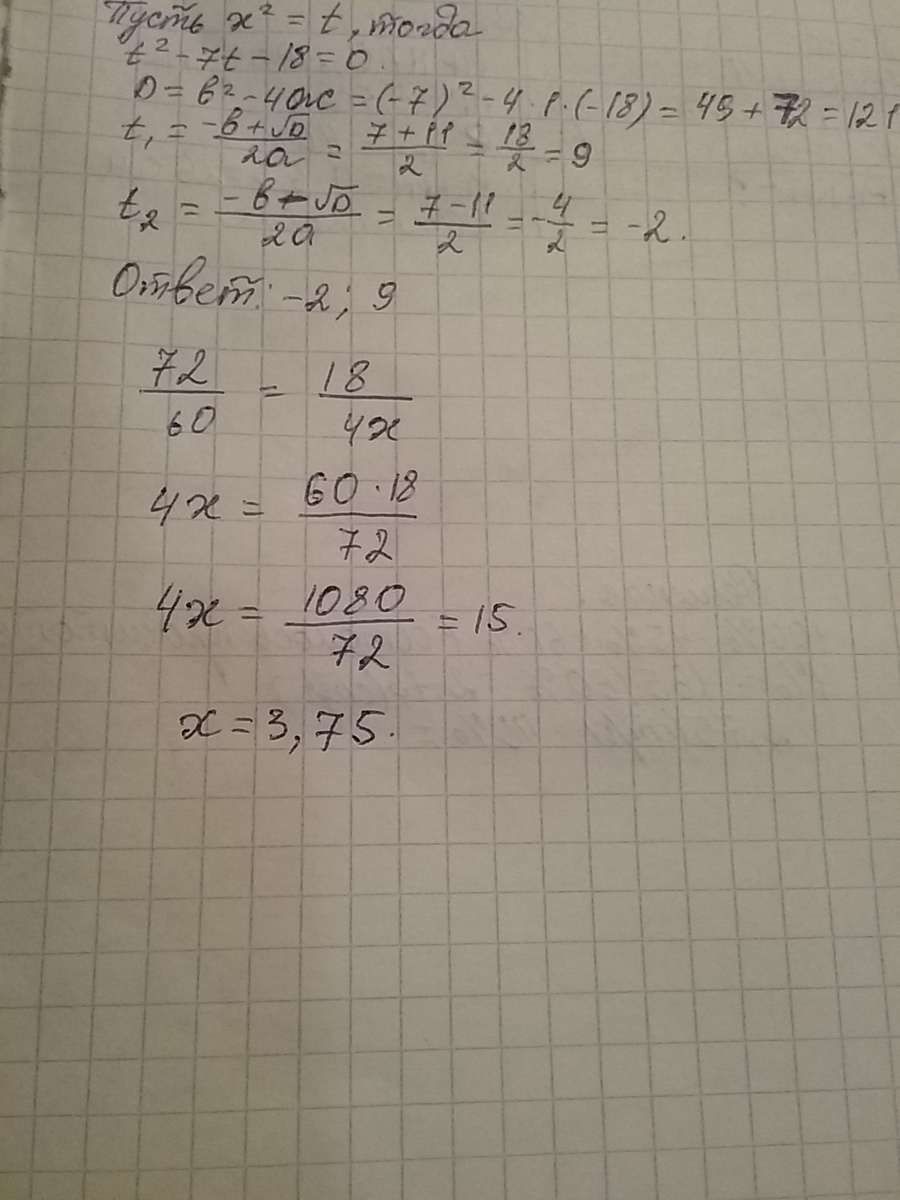 Пусть x² = t, тогда
t² - 7t - 18 = 0.
D = в² - 4ac = (-7)² - 4·1·(-18) = 49 + 72 = 121
t₁ = (-в + √D)/2a = (7 + 11)/2 = 18/2 = 9
t₂ = (-в - √D)/2a = (7 - 11)/2 = -4/2 = -2.
Ответ: -2; 9
72/60 = 18/4x
4x = (60·18)/72
4x = 1080/72 = 15.
x = 3,75.